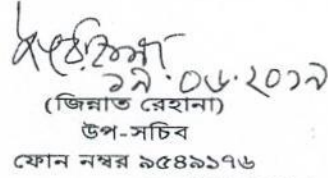 ১৯.০৬.২০১৯
(জিন্নাত রেহানা)
উপ-সচিব
ফোন নম্বর ৯৫৪৯১৭৬